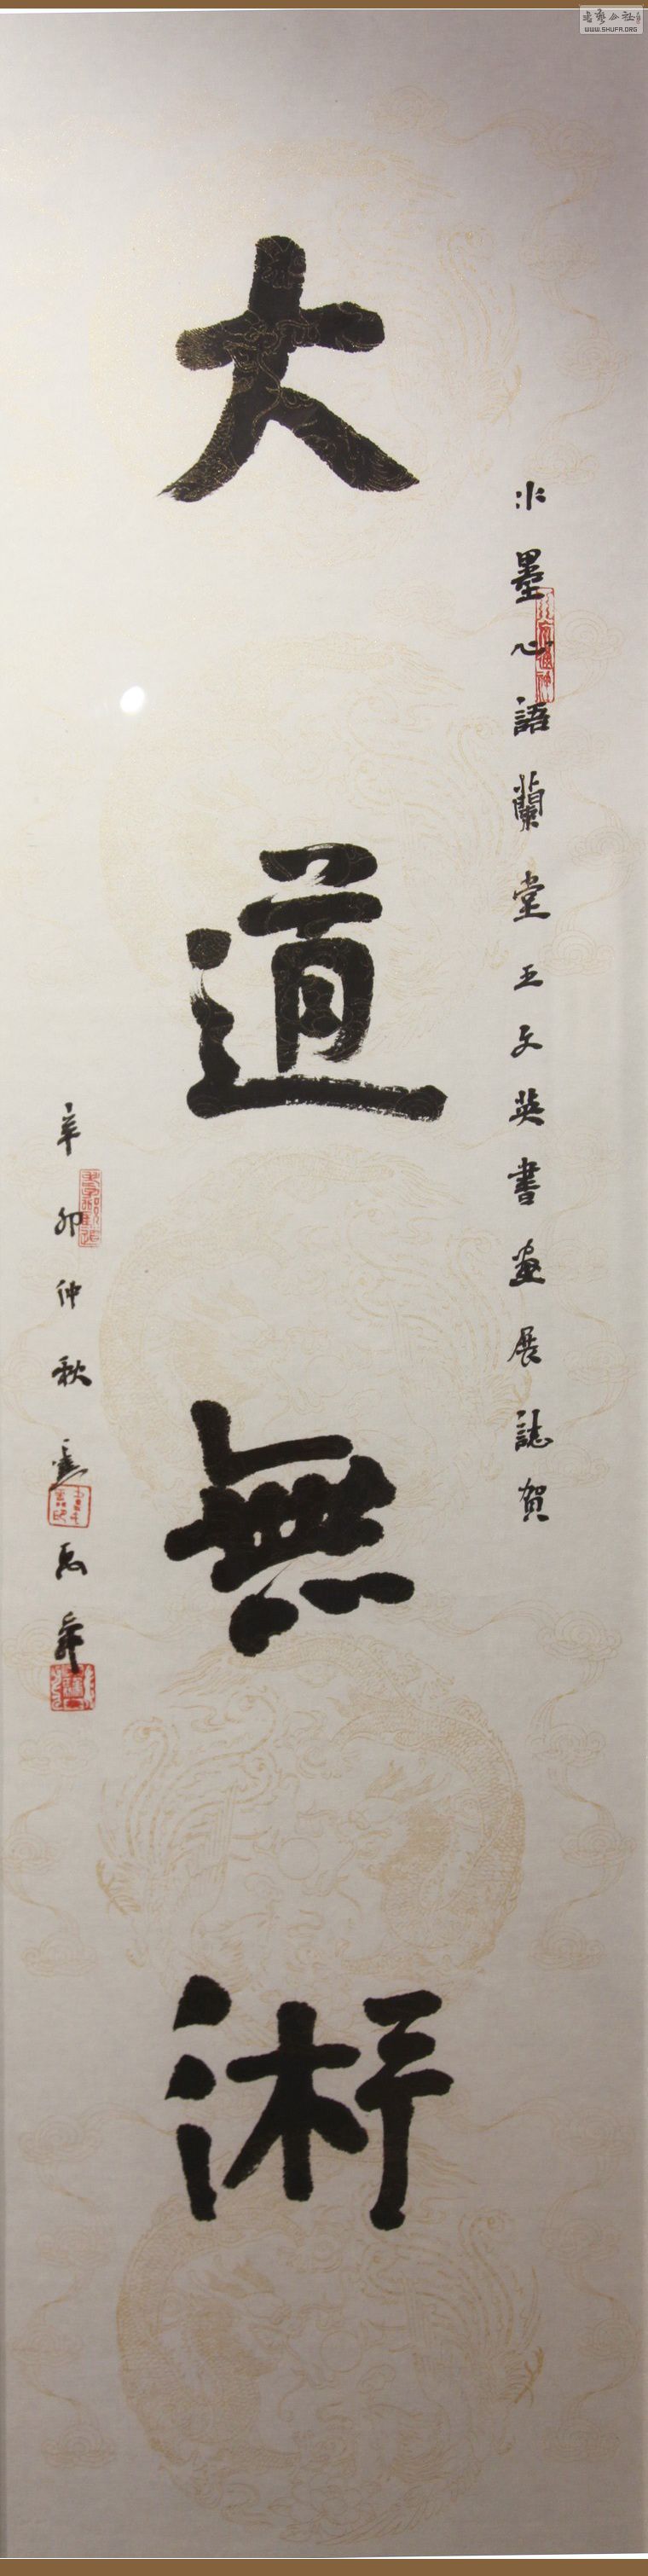 水墨心語蘭堂王文英書畫展誌賀
大道無術
辛卯仲秋
書艺公社
WWW.SHUFA.ORG